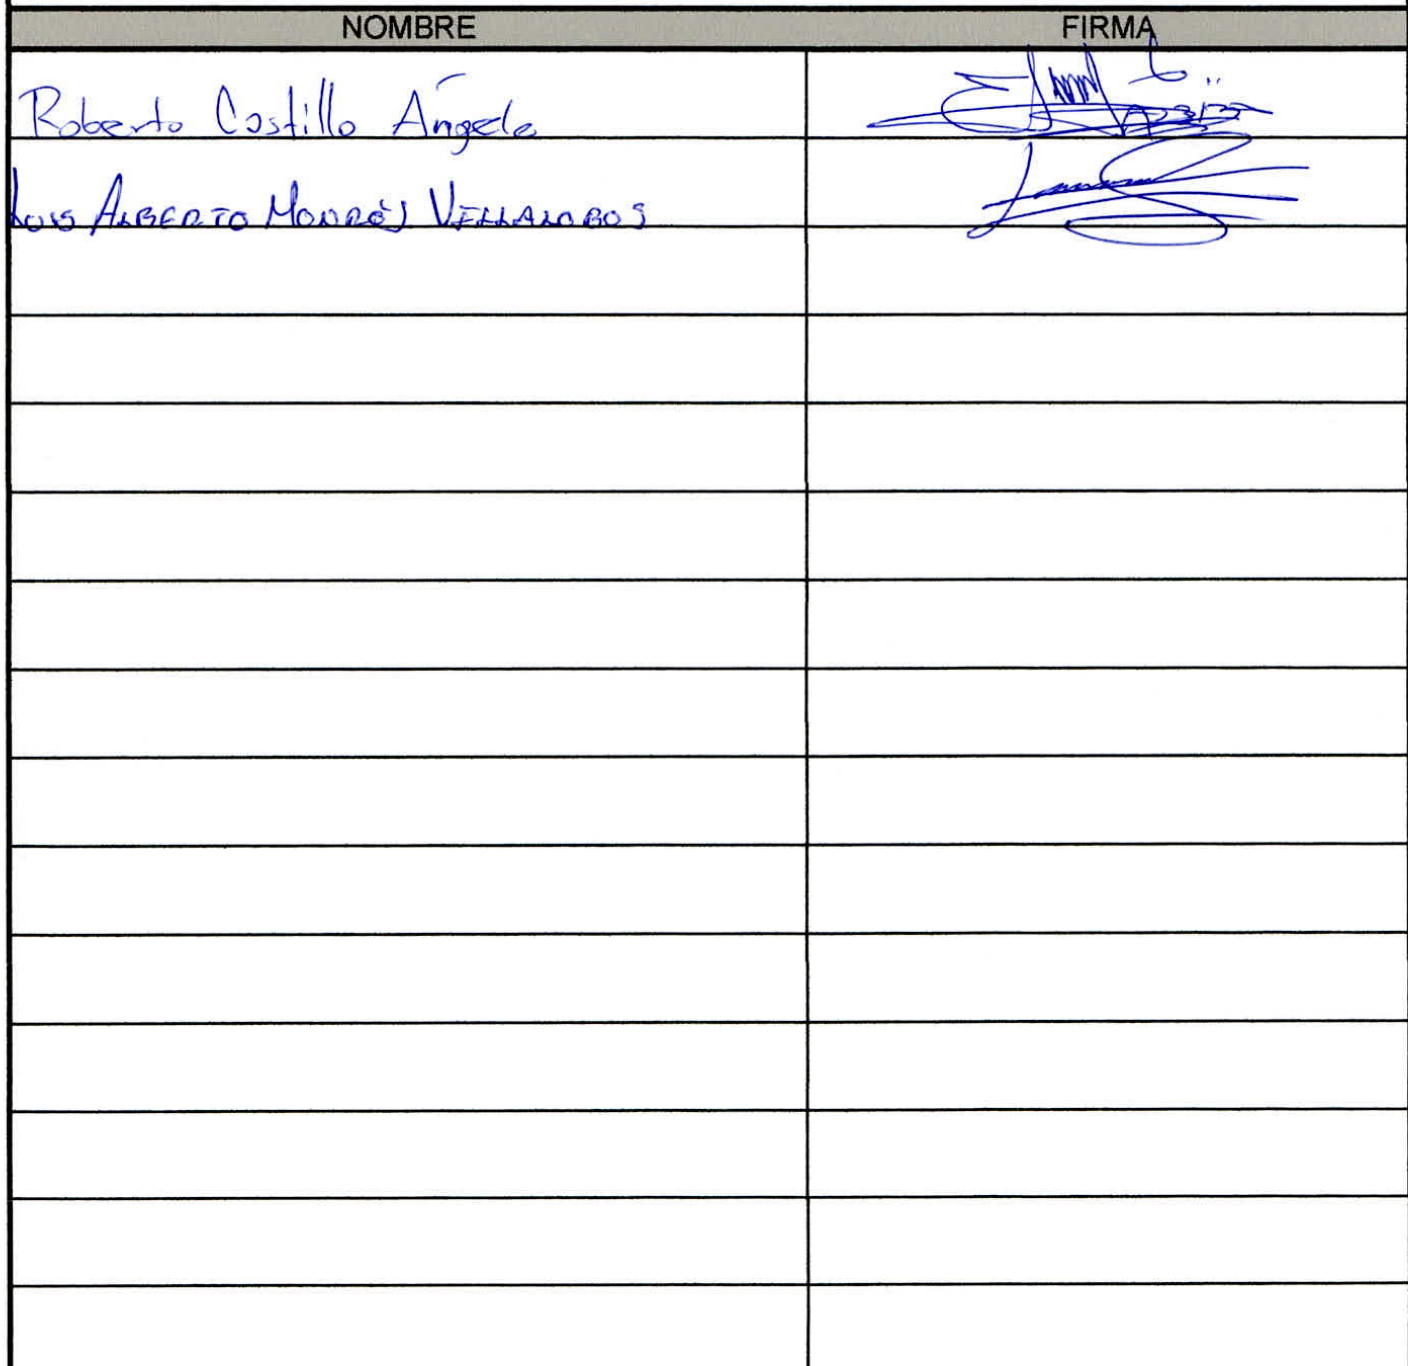 NOMBRE FIRMA
Roberto Castillo Ángele
Luis ALBERTO VILLALOBOS